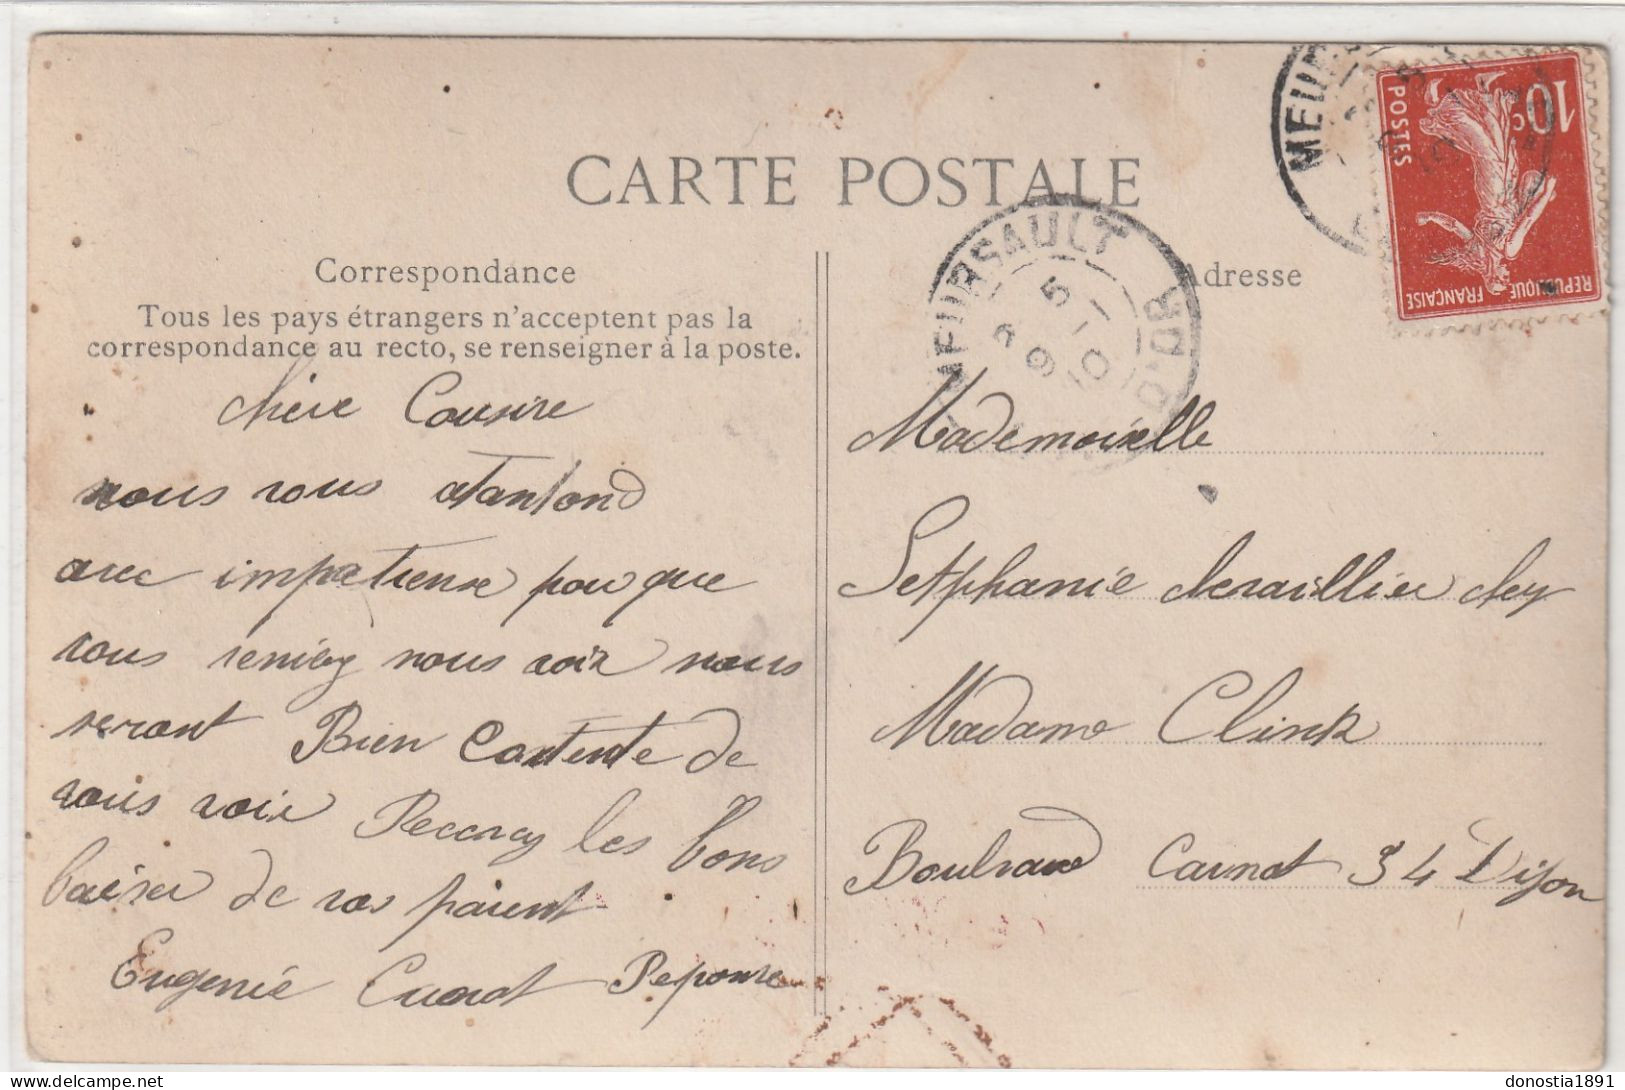 CARTE POSTALE
Correspondance
Tous les pays étrangers n'acceptent pas la
correspondance au recto, se renseigner à la poste.
chère Cousine
nous vous atantond
avec impatiense pour que
vous veniez nous voir nous
seront Bien Contente de
vous voir Recevez les bons
baiser de vos parent
Eugenié Cunot Réponse
Adresse
Mademoiselle
Setphanié chez
Madame Clink
Boulvard Carnot 34 Dijon
MEURSAULT
5 -10
9
D'OR
MEUR
10c
POSTES
REPUBLIQUE FRANÇAISE
donostia1891